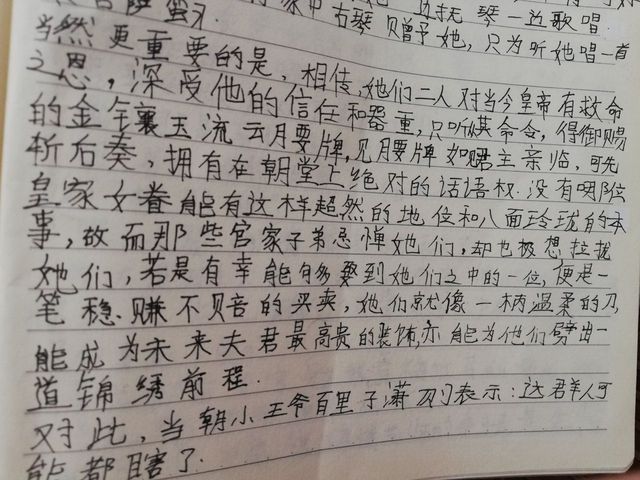 家中古琴赠予她，只为听她唱一首
当然更重要的是，相传，她们二人对当今皇帝有救命
之恩，深受他的信任和器重，只听其命令，得御赐
的金钅襄玉流云月要牌，见月要牌如君主亲临，可先
斩后奏，拥有在朝堂上绝对的话语权.没有哪位
皇家女眷能有这样超然的地位和八面玲珑的本
事，故而那些官家子弟忌惮她们，却也极想拉拢
她们，若是有幸能够娶到她们之中的一位，便是一
笔稳.赚不赔的买卖，她们就像一柄温柔的刀
能成为未来夫君最高贵的装饰，亦能为他们劈出一
道锦绣前程.
对此，当朝小王爷百里子潇表示：这群人可
能都瞎了.